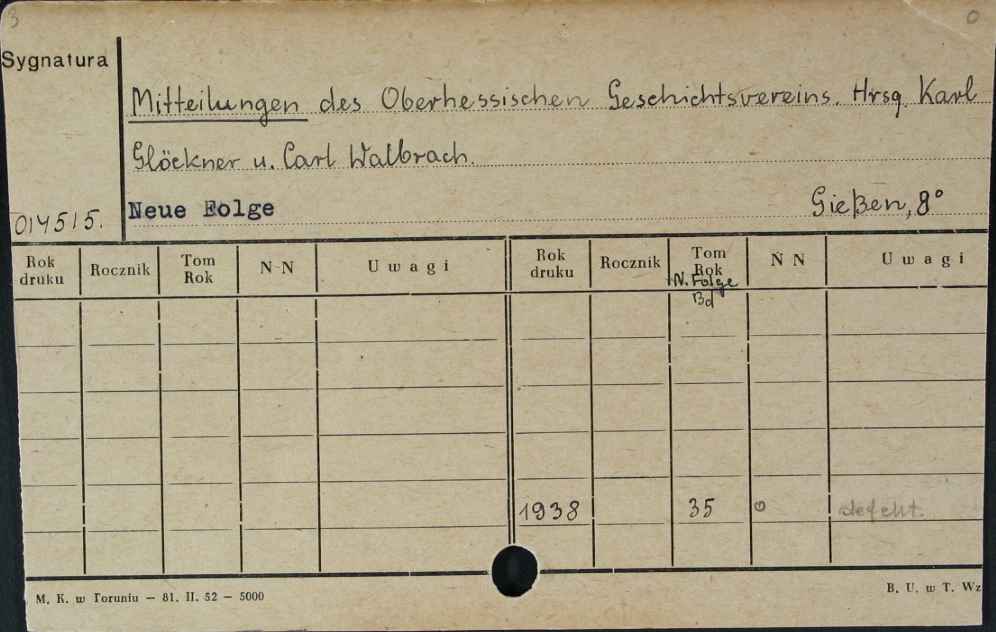 3
0
Sygnatura
Mitteilungen des Oberhessischen Geschichtsvereins. Hrsg. Karl
Glöckner u. Carl Walbrach.
014515.
Neue Folge
Gießen, 8°
Rok druku Rocznik Tom Rok N-N Uwagi Rok druku Rocznik Tom Rok N N Uwagi
N. Folge
Bd
1938 35 0 defekt.
M. K. w Toruniu — 81. II. 52 — 5000
B. U. w T. Wz